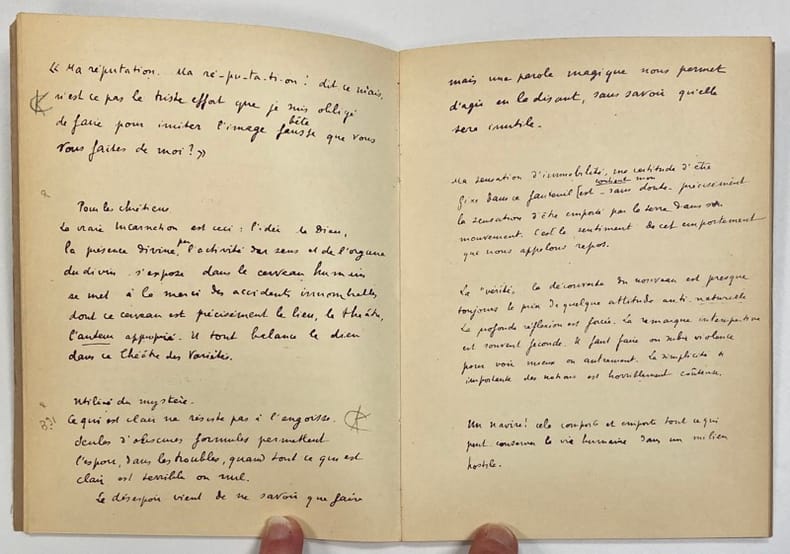 « Ma réputation. Ma ré-pu-ta-ti-on ! dit ce niais,
n'est ce pas le triste effort que je suis obligé
de faire pour imiter l'image fausse bête que vous
vous faites de moi ? »
Pour les chrétiens.
La vraie Incarnation est ceci : l'idée de Dieu,
la présence divine, par l'activité des sens et de l'organe
du divin s'expose dans le cerveau humain
se met à la merci des accidents innombrables
dont ce cerveau est précisément le lieu, le théâtre,
l'auteur approprié. Il tout balance le dieu
dans ce théâtre des Variétés.
Utilité du mystère.
Ce qui est clair ne résiste pas à l'angoisse.
Seules d'obscures formules permettent
l'espoir, dans les troubles, quand tout ce qui est
clair est terrible ou nul.
Le désespoir vient de ne savoir que faire
mais une parole magique nous permet
d'agir en la disant, sans savoir qu'elle
sera inutile.
Ma sensation d'immobilité, ma certitude d'être
fixe dans ce fauteuil est - sans doute - précisément
la sensation d'être emporté par la terre dans son
mouvement. C'est le sentiment de cet emportement
que nous appelons repos.
La "vérité", la découverte du nouveau est presque
toujours le prix de quelque attitude anti-naturelle
La profonde réflexion est forcée. La remarque intempestive
est souvent féconde. Il faut faire ou subir violence
pour voir mieux ou autrement. La simplicité
importante des notions est horriblement coûteuse.
Un navire ! cela comporte et emporte tout ce qui
peut conserver la vie humaine dans un milieu
hostile.